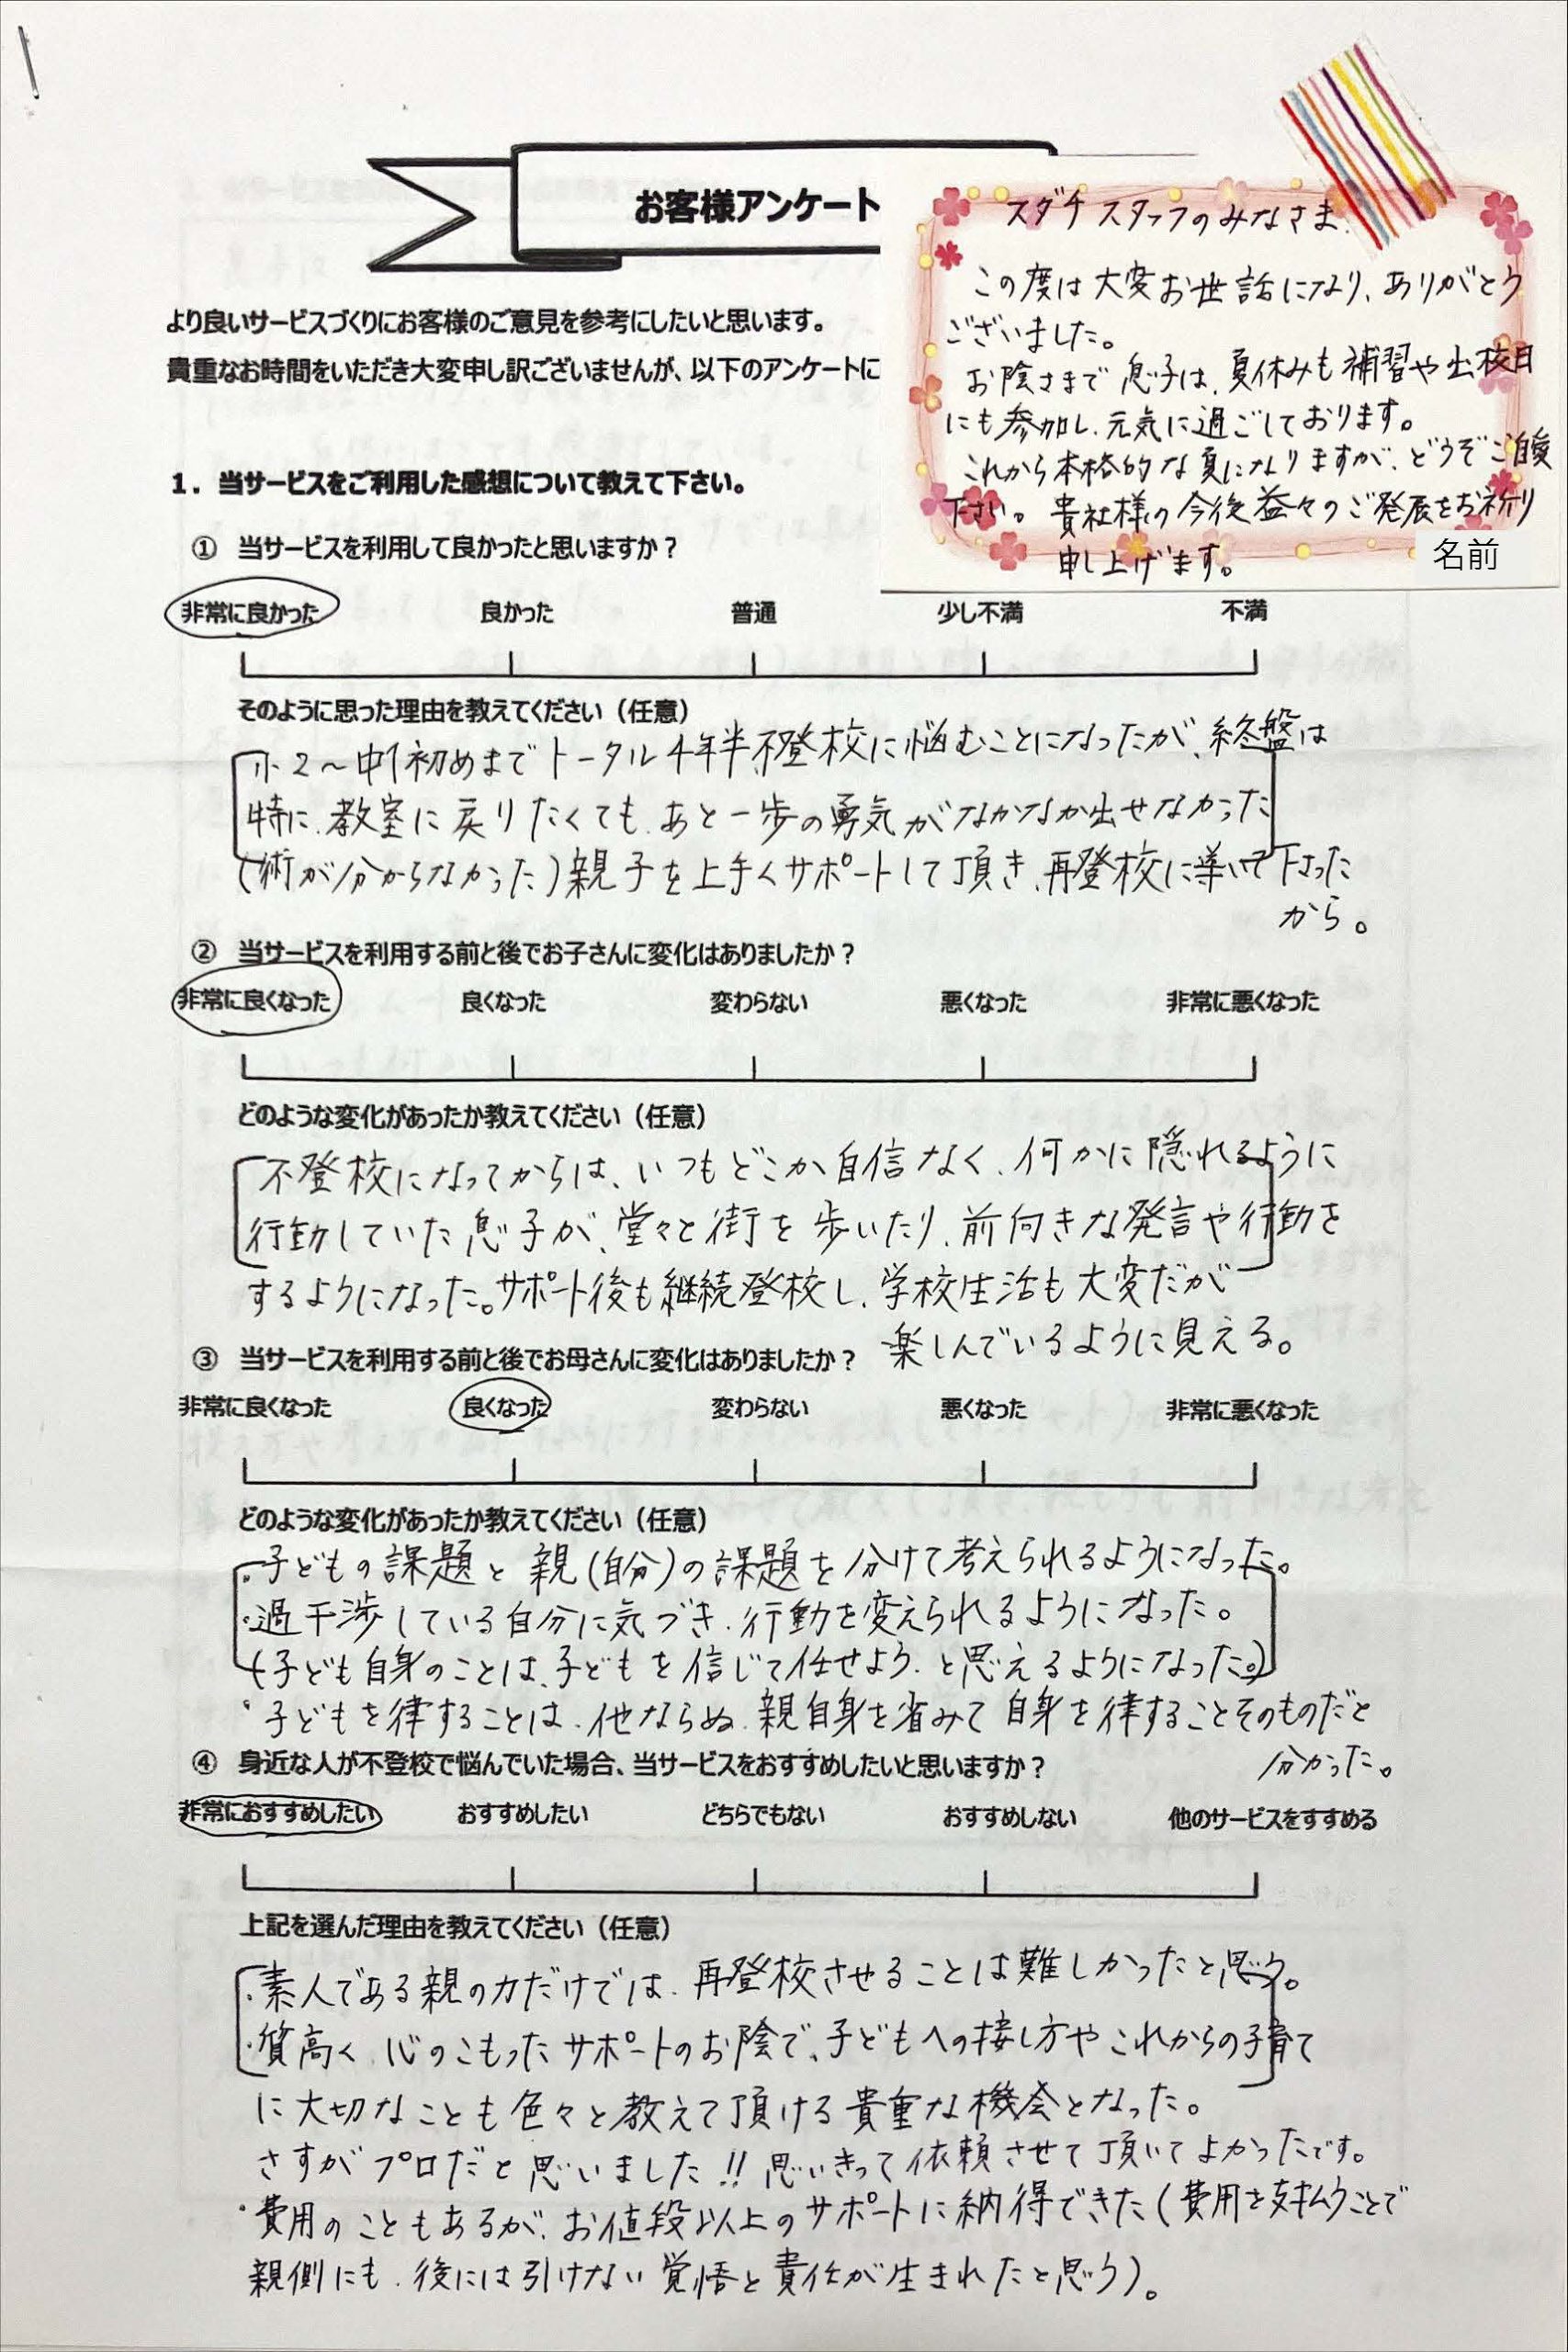 お客様アンケート
より良いサービスづくりにお客様のご意見を参考にしたいと思います。
貴重なお時間をいただき大変申し訳ございませんが、以下のアンケートに
スダチスタッフのみなさま、
この度は大変お世話になり、ありがとう
ございました。
お陰さまで息子は、夏休みも補習や出校日
にも参加し、元気に過ごしております。
これから本格的な夏になりますが、どうぞご自愛
下さい。貴社様の今後益々のご発展をお祈り
申し上げます。
名前
1. 当サービスをご利用した感想について教えて下さい。
① 当サービスを利用して良かったと思いますか?
非常に良かった 良かった 普通 少し不満 不満
そのように思った理由を教えてください(任意)
小2~中1初めまでトータル4年半、不登校に悩むことになったが、終盤は
特に、教室に戻りたくても、あと一歩の勇気がなかなか出せなかった
(術が分からなかった)親子を上手くサポートして頂き、再登校に導いて下さった
から。
② 当サービスを利用する前と後でお子さんに変化はありましたか?
非常に良くなった 良くなった 変わらない 悪くなった 非常に悪くなった
どのような変化があったか教えてください(任意)
不登校になってからは、いつもどこか自信なく、何かに隠れるように
行動していた息子が、堂々と街を歩いたり、前向きな発言や行動を
するようになった。サポート後も継続登校し、学校生活も大変だが
楽しんでいるように見える。
③ 当サービスを利用する前と後でお母さんに変化はありましたか?
非常に良くなった 良くなった 変わらない 悪くなった 非常に悪くなった
どのような変化があったか教えてください(任意)
・子どもの課題と親(自分)の課題を分けて考えられるようになった。
・過干渉している自分に気づき、行動を変えられるようになった。
(子ども自身のことは、子どもを信じて任せよう、と思えるようになった。)
・子どもを律することは、他ならぬ、親自身を省みて自身を律することそのものだと
分かった。
④ 身近な人が不登校で悩んでいた場合、当サービスをおすすめしたいと思いますか?
非常におすすめしたい おすすめしたい どちらでもない おすすめしない 他のサービスをすすめる
上記を選んだ理由を教えてください(任意)
・素人である親の力だけでは、再登校させることは難しかったと思う。
・質高く、心のこもったサポートのお陰で、子どもへの接し方やこれからの子育て
に大切なことも色々と教えて頂ける貴重な機会となった。
さすがプロだと思いました!!思いきって依頼させて頂いてよかったです。
・費用のこともあるが、お値段以上のサポートに納得できた(費用を支払うことで
親側にも、後には引けない覚悟と責任が生まれたと思う)。